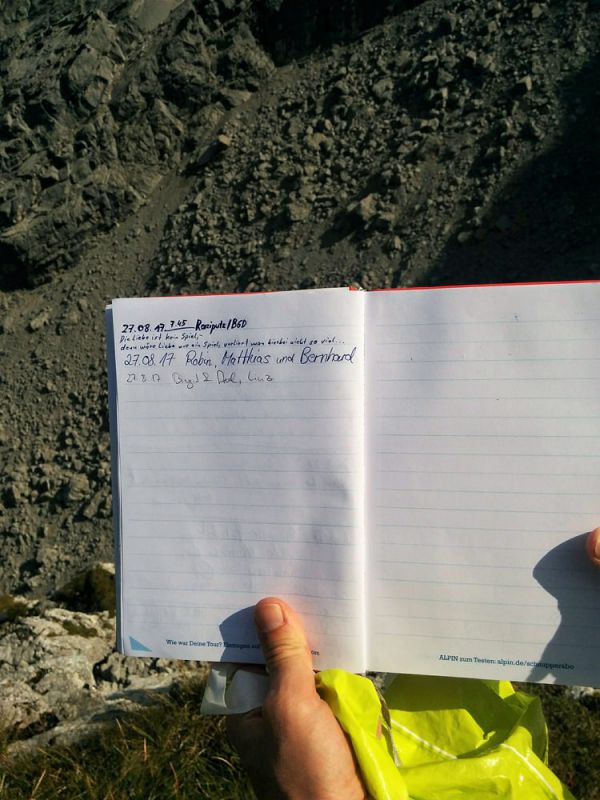 27.08.17 7.45 Raziputz/BGD
Die Liebe ist kein Spiel,-
denn wäre Liebe wie ein Spiel, verliert man hierbei nicht so viel...
27.08.17 Robin, Matthias und Bernhard
27.8.17 &
Wie war Deine Tour? auf
ALPIN zum Testen: alpin.de/schnupperabo